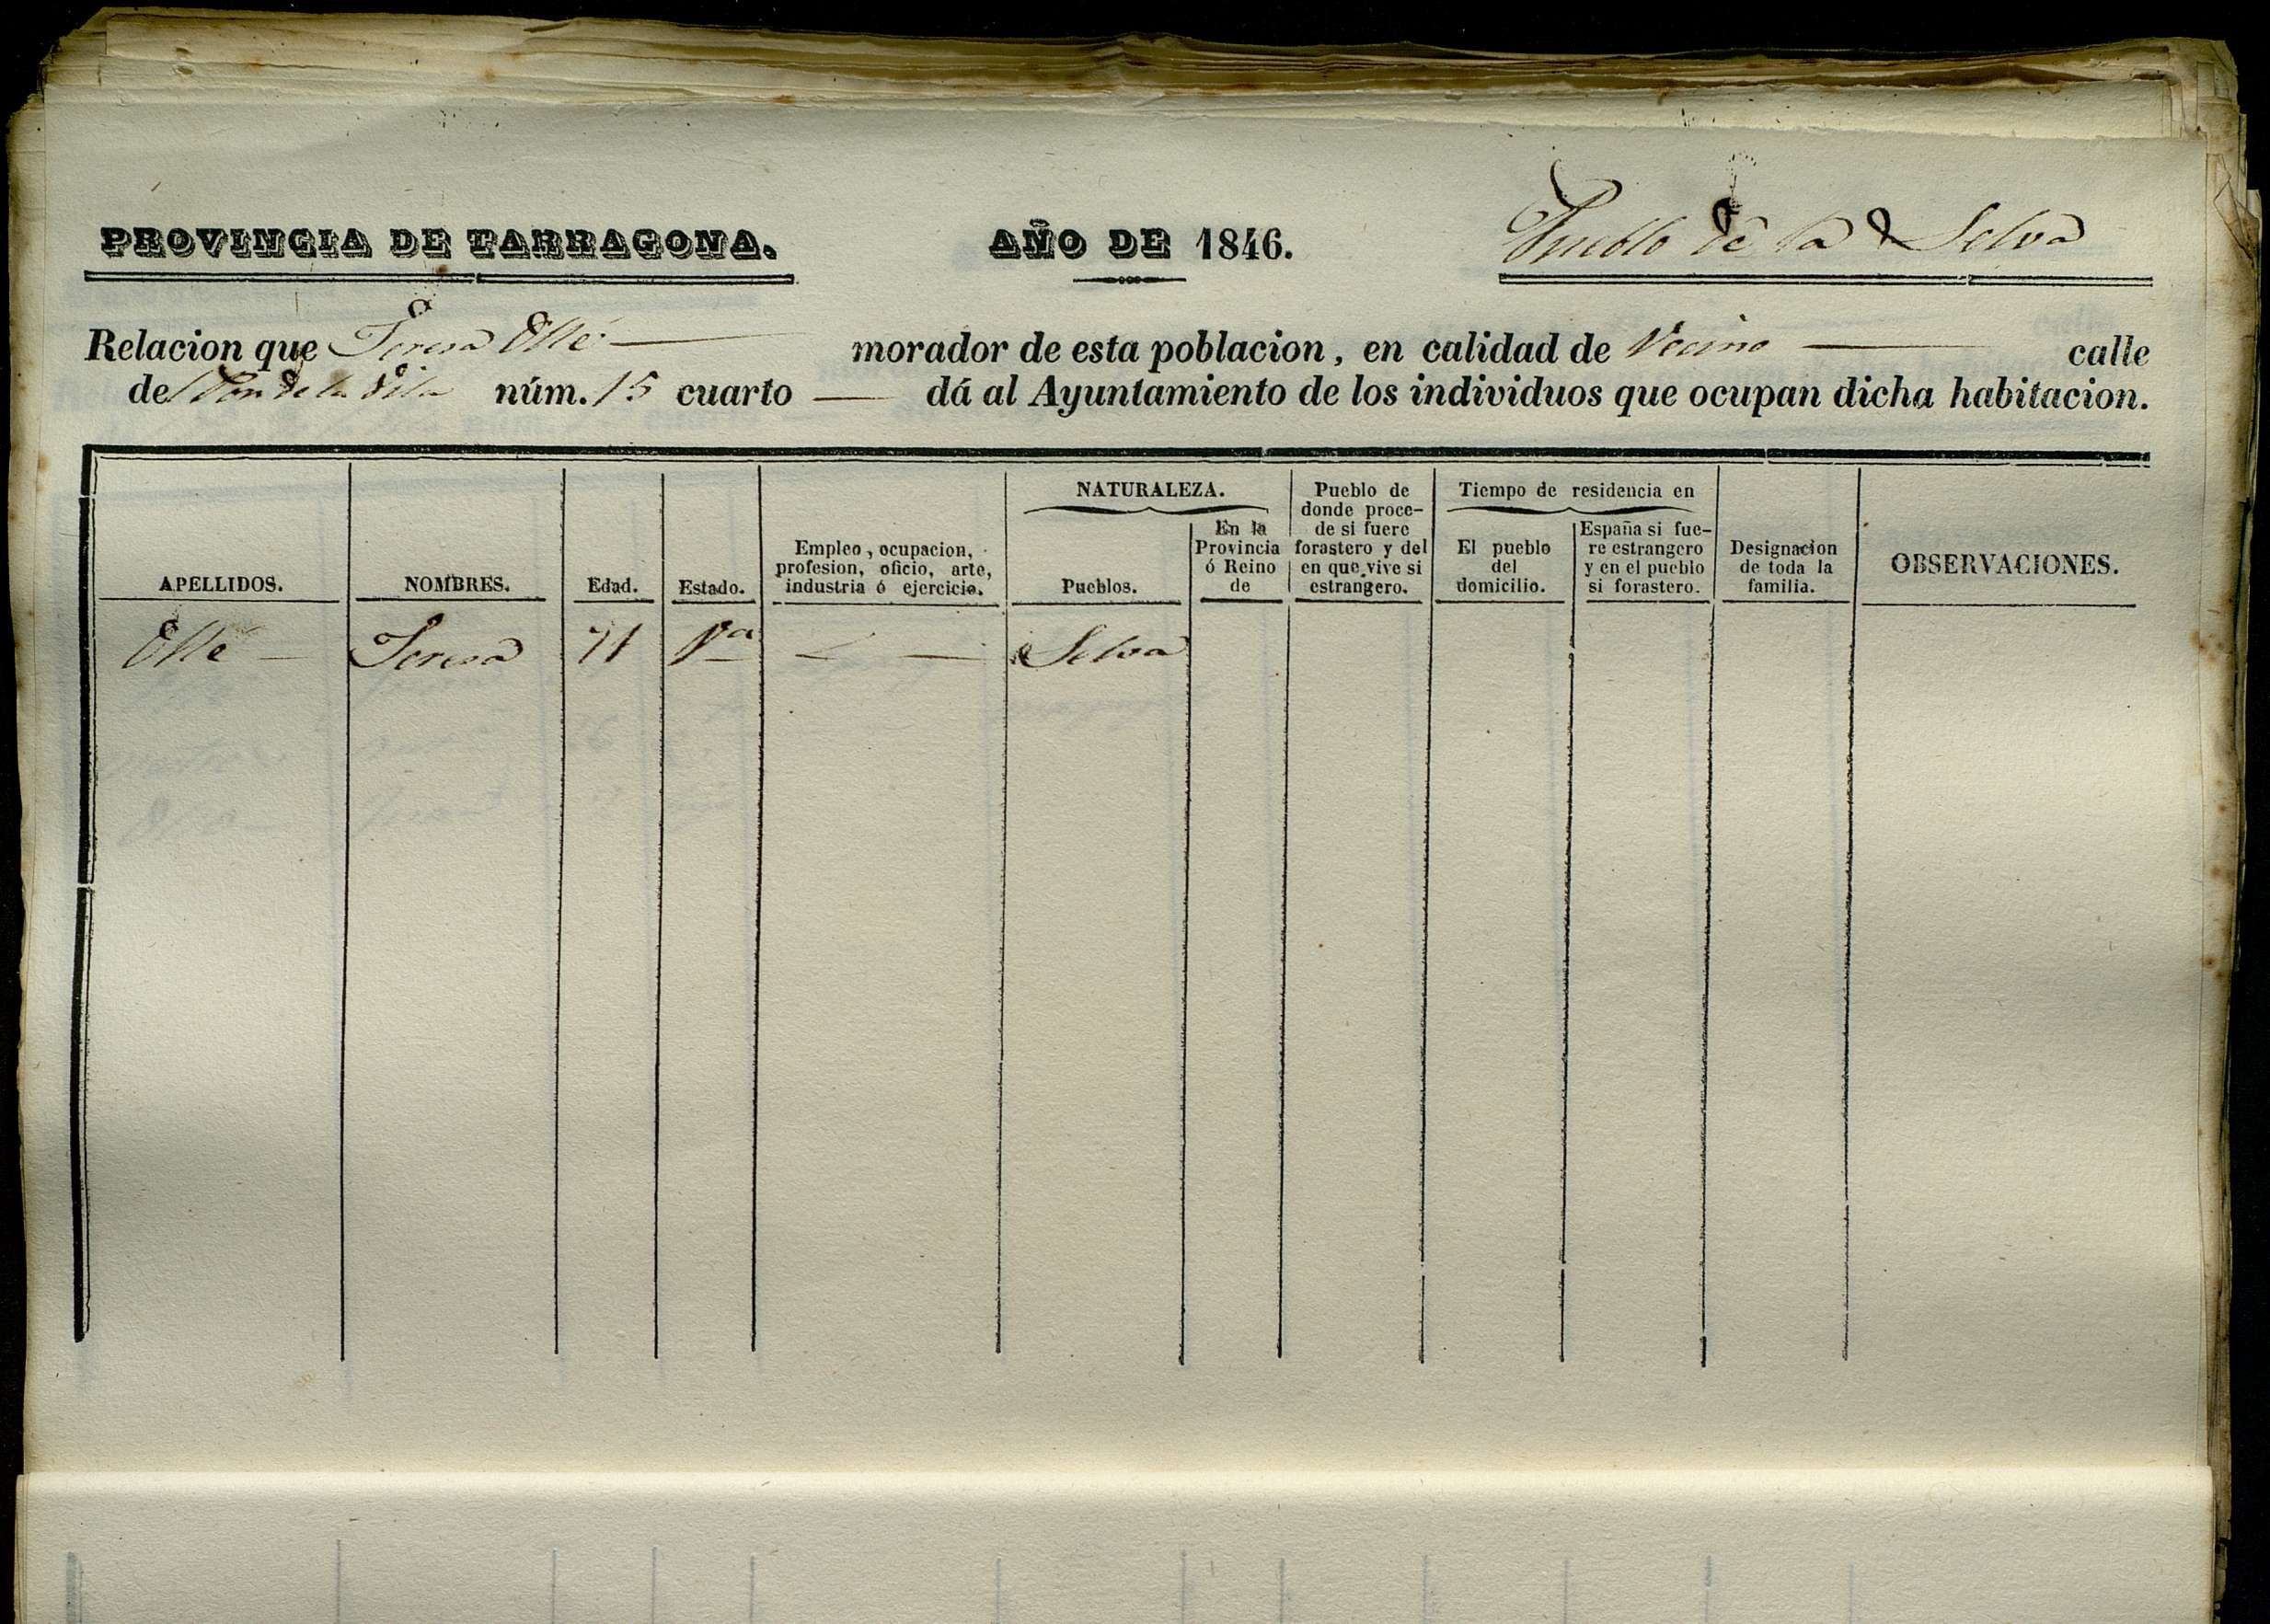 PROVINCIA DE TARRAGONA. AÑO DE 1846. Pueblo de la Selva
Relacion que Teresa Ollé — morador de esta poblacion, en calidad de Vecino — calle
de la Vila núm. 15 cuarto — dá al Ayuntamiento de los individuos que ocupan dicha habitacion.
APELLIDOS.
NOMBRES.
Edad.
Estado.
Empleo, ocupacion,
profesion, oficio, arte,
industria ó ejercicio.
NATURALEZA.
Pueblos.
En la
Provincia
ó Reino
de
Pueblo de
donde proce-
de si fuere
forastero y del
en que vive si
estrangero.
Tiempo de residencia en
El pueblo
del
domicilio.
España si fue-
re estrangero
y en el pueblo
si forastero.
Designacion
de toda la
familia.
OBSERVACIONES.
Ollé — Teresa 71 Vª — Selva